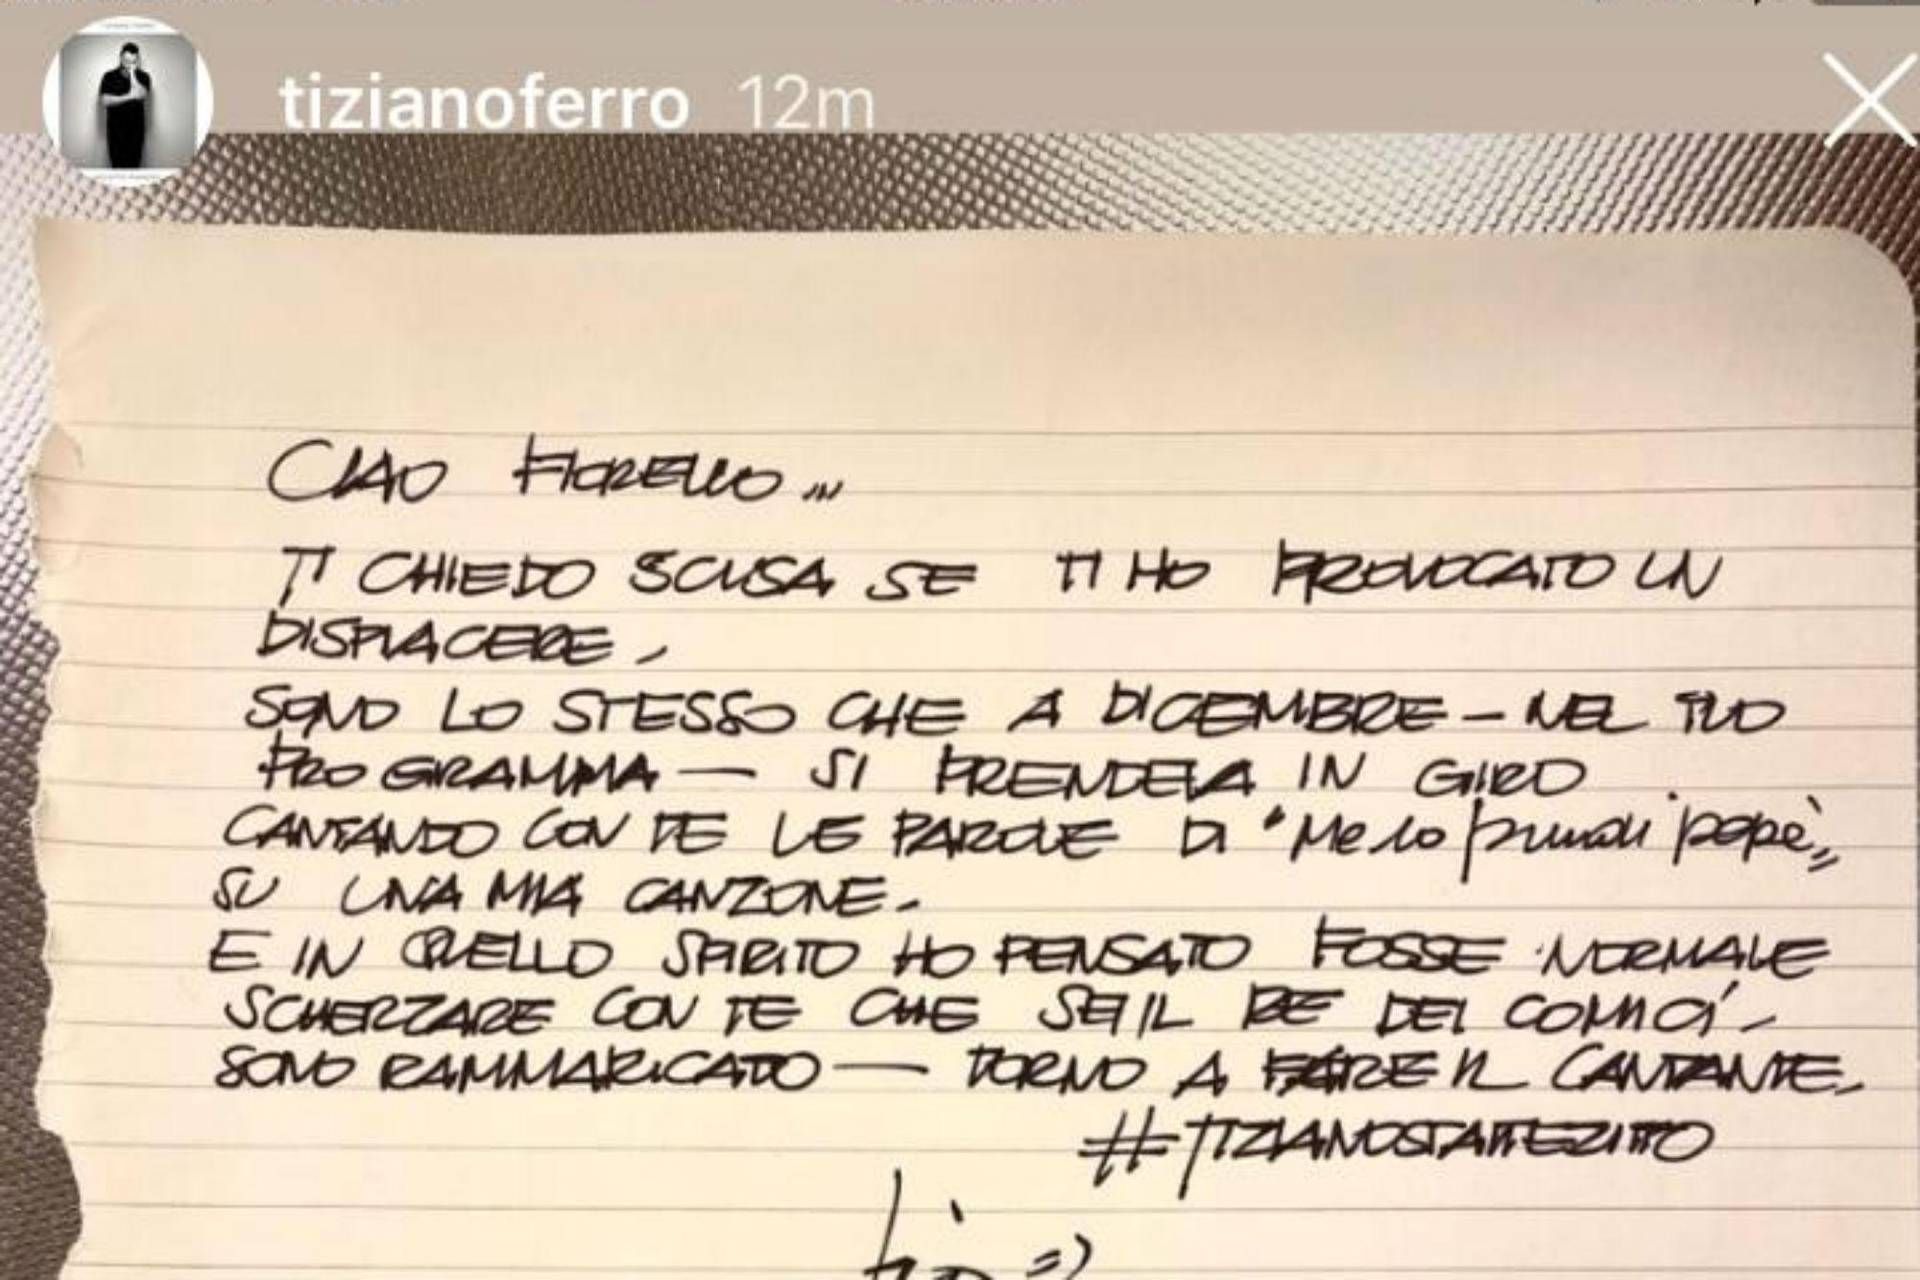 tizianoferro 12m
CIAO FIORELLO...
TI CHIEDO SCUSA SE TI HO PROVOCATO UN
DISPIACERE.
SONO LO STESSO CHE A DICEMBRE - NEL TUO
PROGRAMMA - SI PRENDEVA IN GIRO
CANTANDO CON TE LE PAROLE DI "Me lo prendi papè"
SU UNA MIA CANZONE.
E IN QUELLO SPIRITO HO PENSATO FOSSE NORMALE
SCHERZARE CON TE CHE SEI IL RE DEI COMICI.
SONO RAMMARICATO - TORNO A FARE IL CANTANTE.
#TIZIANOSTATTEZITTO